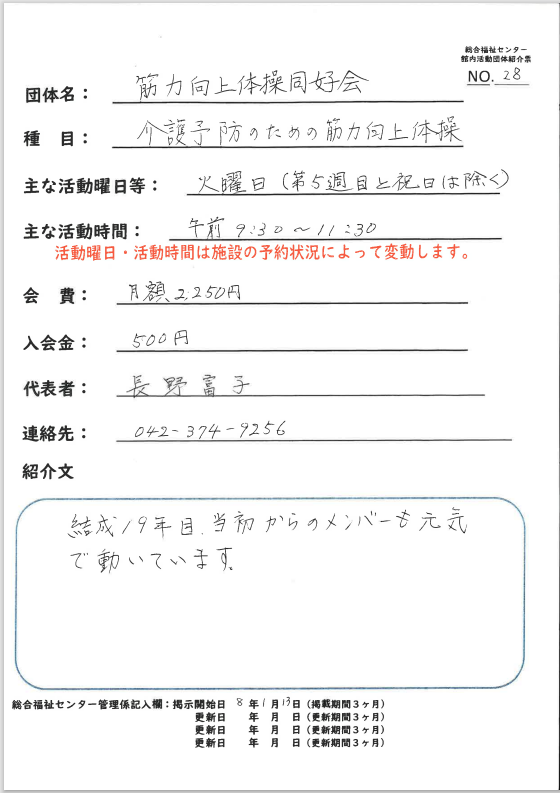 総合福祉センター
館内活動団体紹介票
NO. 28
団体名： 筋力向上体操同好会
種　目： 介護予防のための筋力向上体操
主な活動曜日等： 火曜日（第5週目と祝日は除く）
主な活動時間： 午前 9:30～11:30
活動曜日・活動時間は施設の予約状況によって変動します。
会　費： 月額 2,250円
入会金： 500円
代表者： 長野富子
連絡先： 042-374-9256
紹介文
結成19年目、当初からのメンバーも元気
で動いています。
総合福祉センター管理係記入欄：掲示開始日　8 年 1 月 13 日（掲載期間３ヶ月）
更新日　年　月　日（更新期間３ヶ月）
更新日　年　月　日（更新期間３ヶ月）
更新日　年　月　日（更新期間３ヶ月）